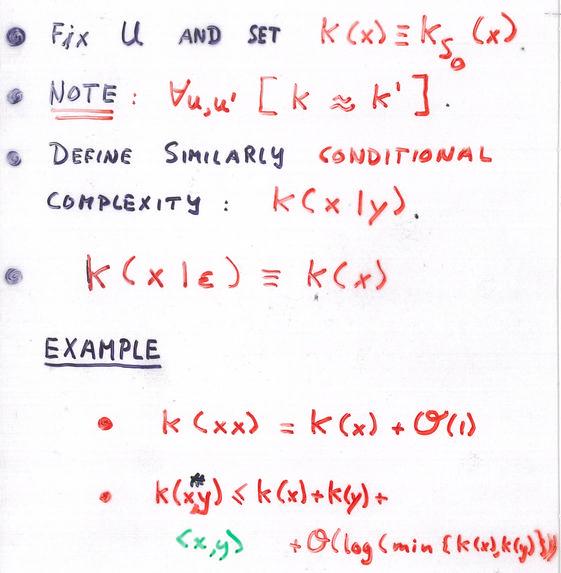 • Fix U AND SET K(x) ≡ K_{S_0}(x).
• NOTE: ∀u,u' [K ≈ K'].
• DEFINE SIMILARLY CONDITIONAL
COMPLEXITY: K(x|y).
• K(x|ε) ≡ K(x)
EXAMPLE
• K(xx) = K(x) + O(1)
• K(xy)* ≤ K(x)+K(y)+
⟨x,y⟩ +O(log(min{K(x),K(y)}))